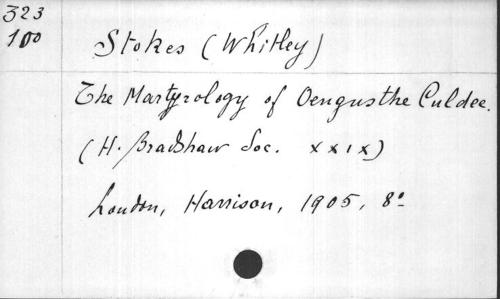 323
100
Stokes (Whitley)
The Martyrology of Oengus the Culdee.
(H. Bradshaw Soc. XXIX)
London, Harrison, 1905, 8º